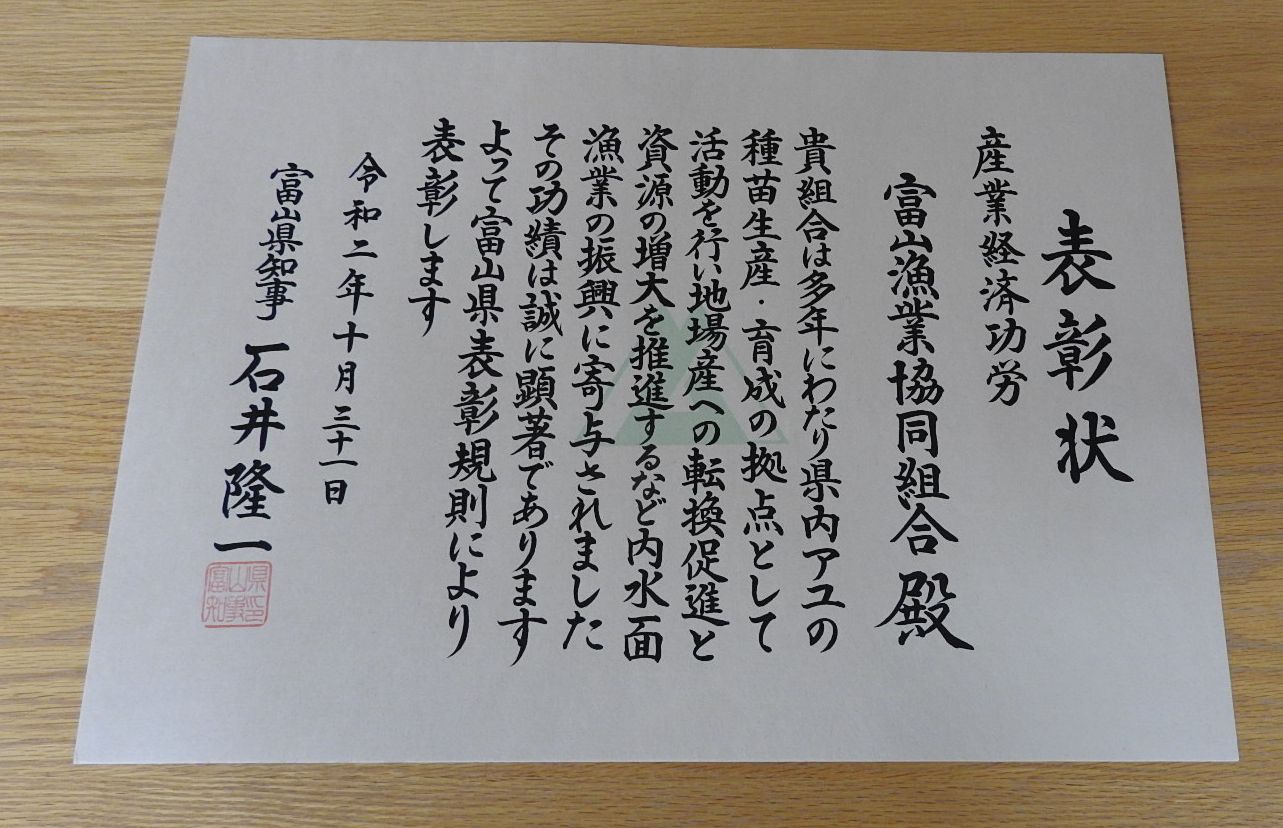 表彰状
産業経済功労
富山漁業協同組合殿
貴組合は多年にわたり県内アユの
種苗生産・育成の拠点として
活動を行い地場産への転換促進と
資源の増大を推進するなど内水面
漁業の振興に寄与されました
その功績は誠に顕著であります
よって富山県表彰規則により
表彰します
令和二年十月三十一日
富山県知事 石井隆一
富山県知事印